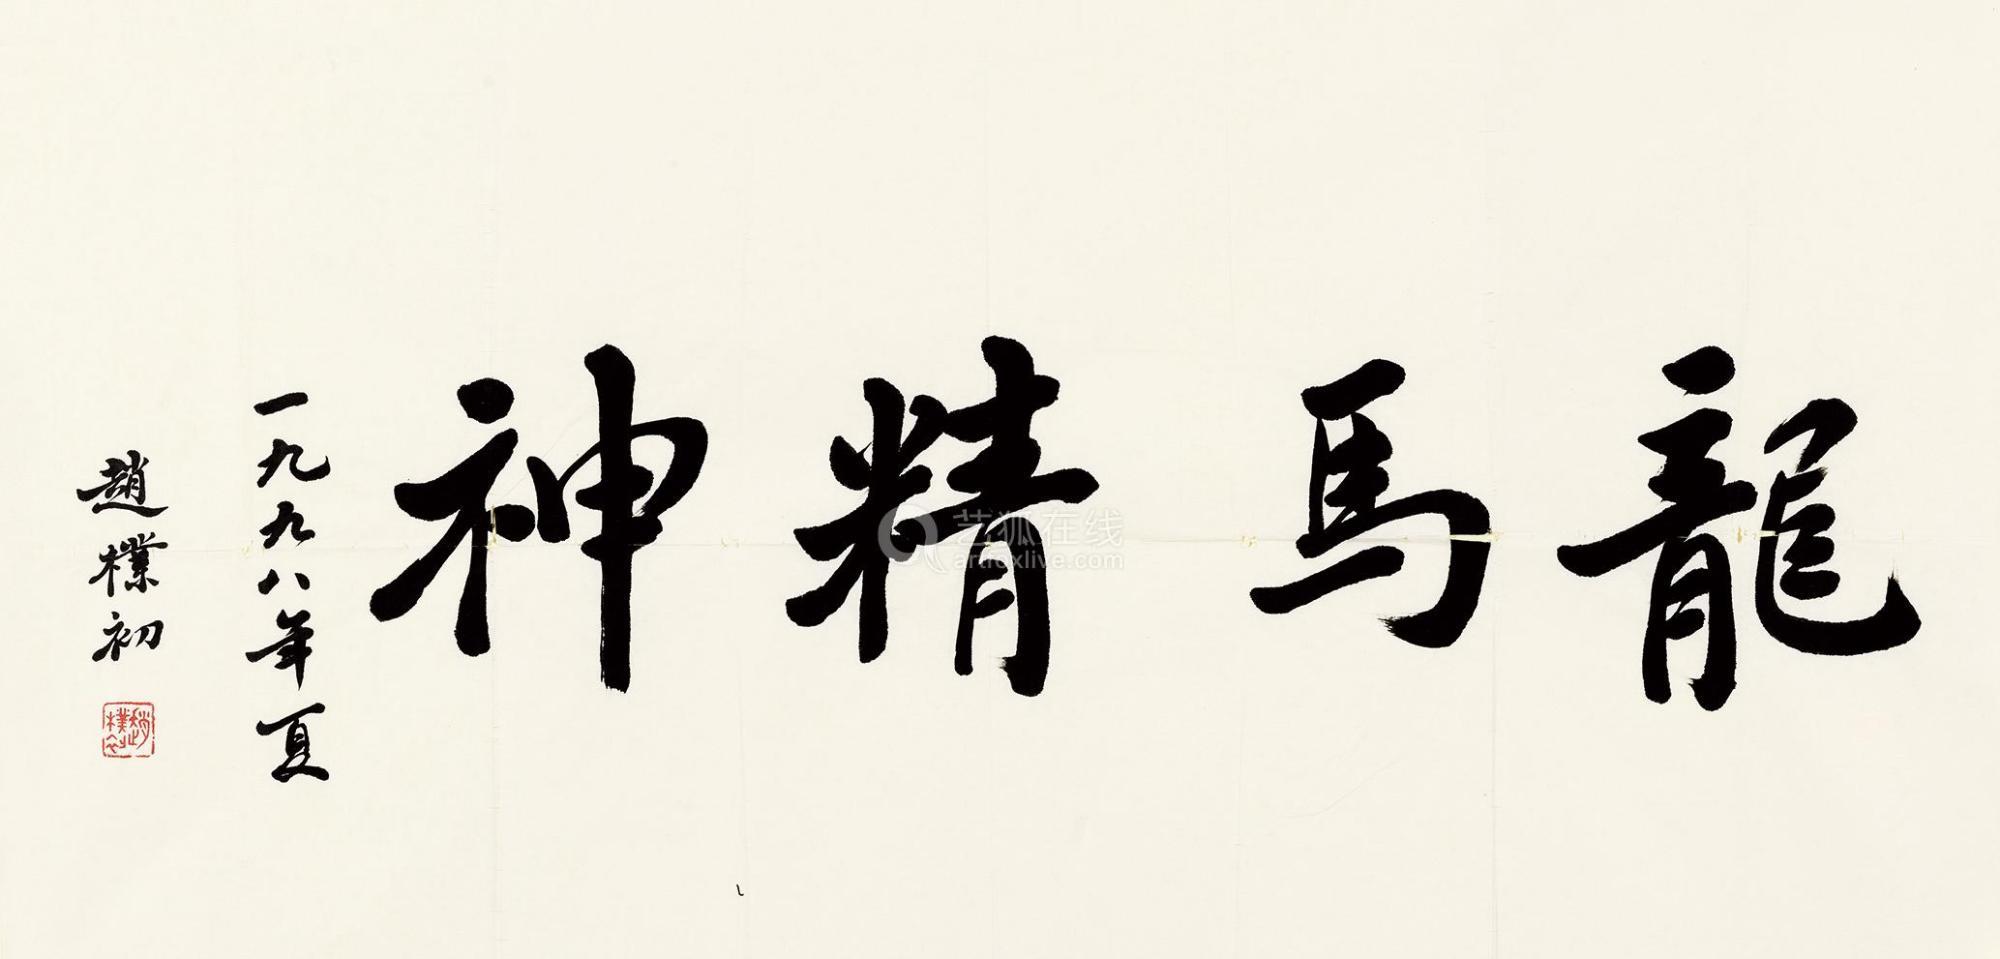 龍馬精神
一九九八年夏
趙樸初
趙樸初
艺狐在线
artfoxlive.com